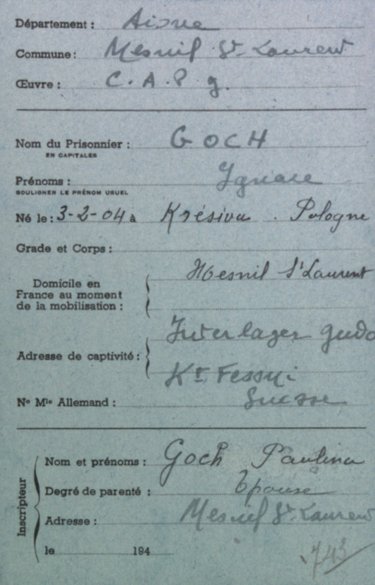 Département : Aisne
Commune : Mesnil St Laurent
Œuvre : C.A.P g.
Nom du Prisonnier : GOCH
EN CAPITALES
Prénoms : Ignace
SOULIGNER LE PRÉNOM USUEL
Né le : 3-2-04 à Krésiva . Pologne
Grade et Corps :
Domicile en France au moment de la mobilisation :
Mesnil St Laurent
Adresse de captivité :
Interlager gudo
Kt Fessyi
Suisse
No Mle Allemand :
Inscripteur
Nom et prénoms : Goch Paulina
Degré de parenté : Epouse
Adresse : Mesnil St Laurent
le 194
743